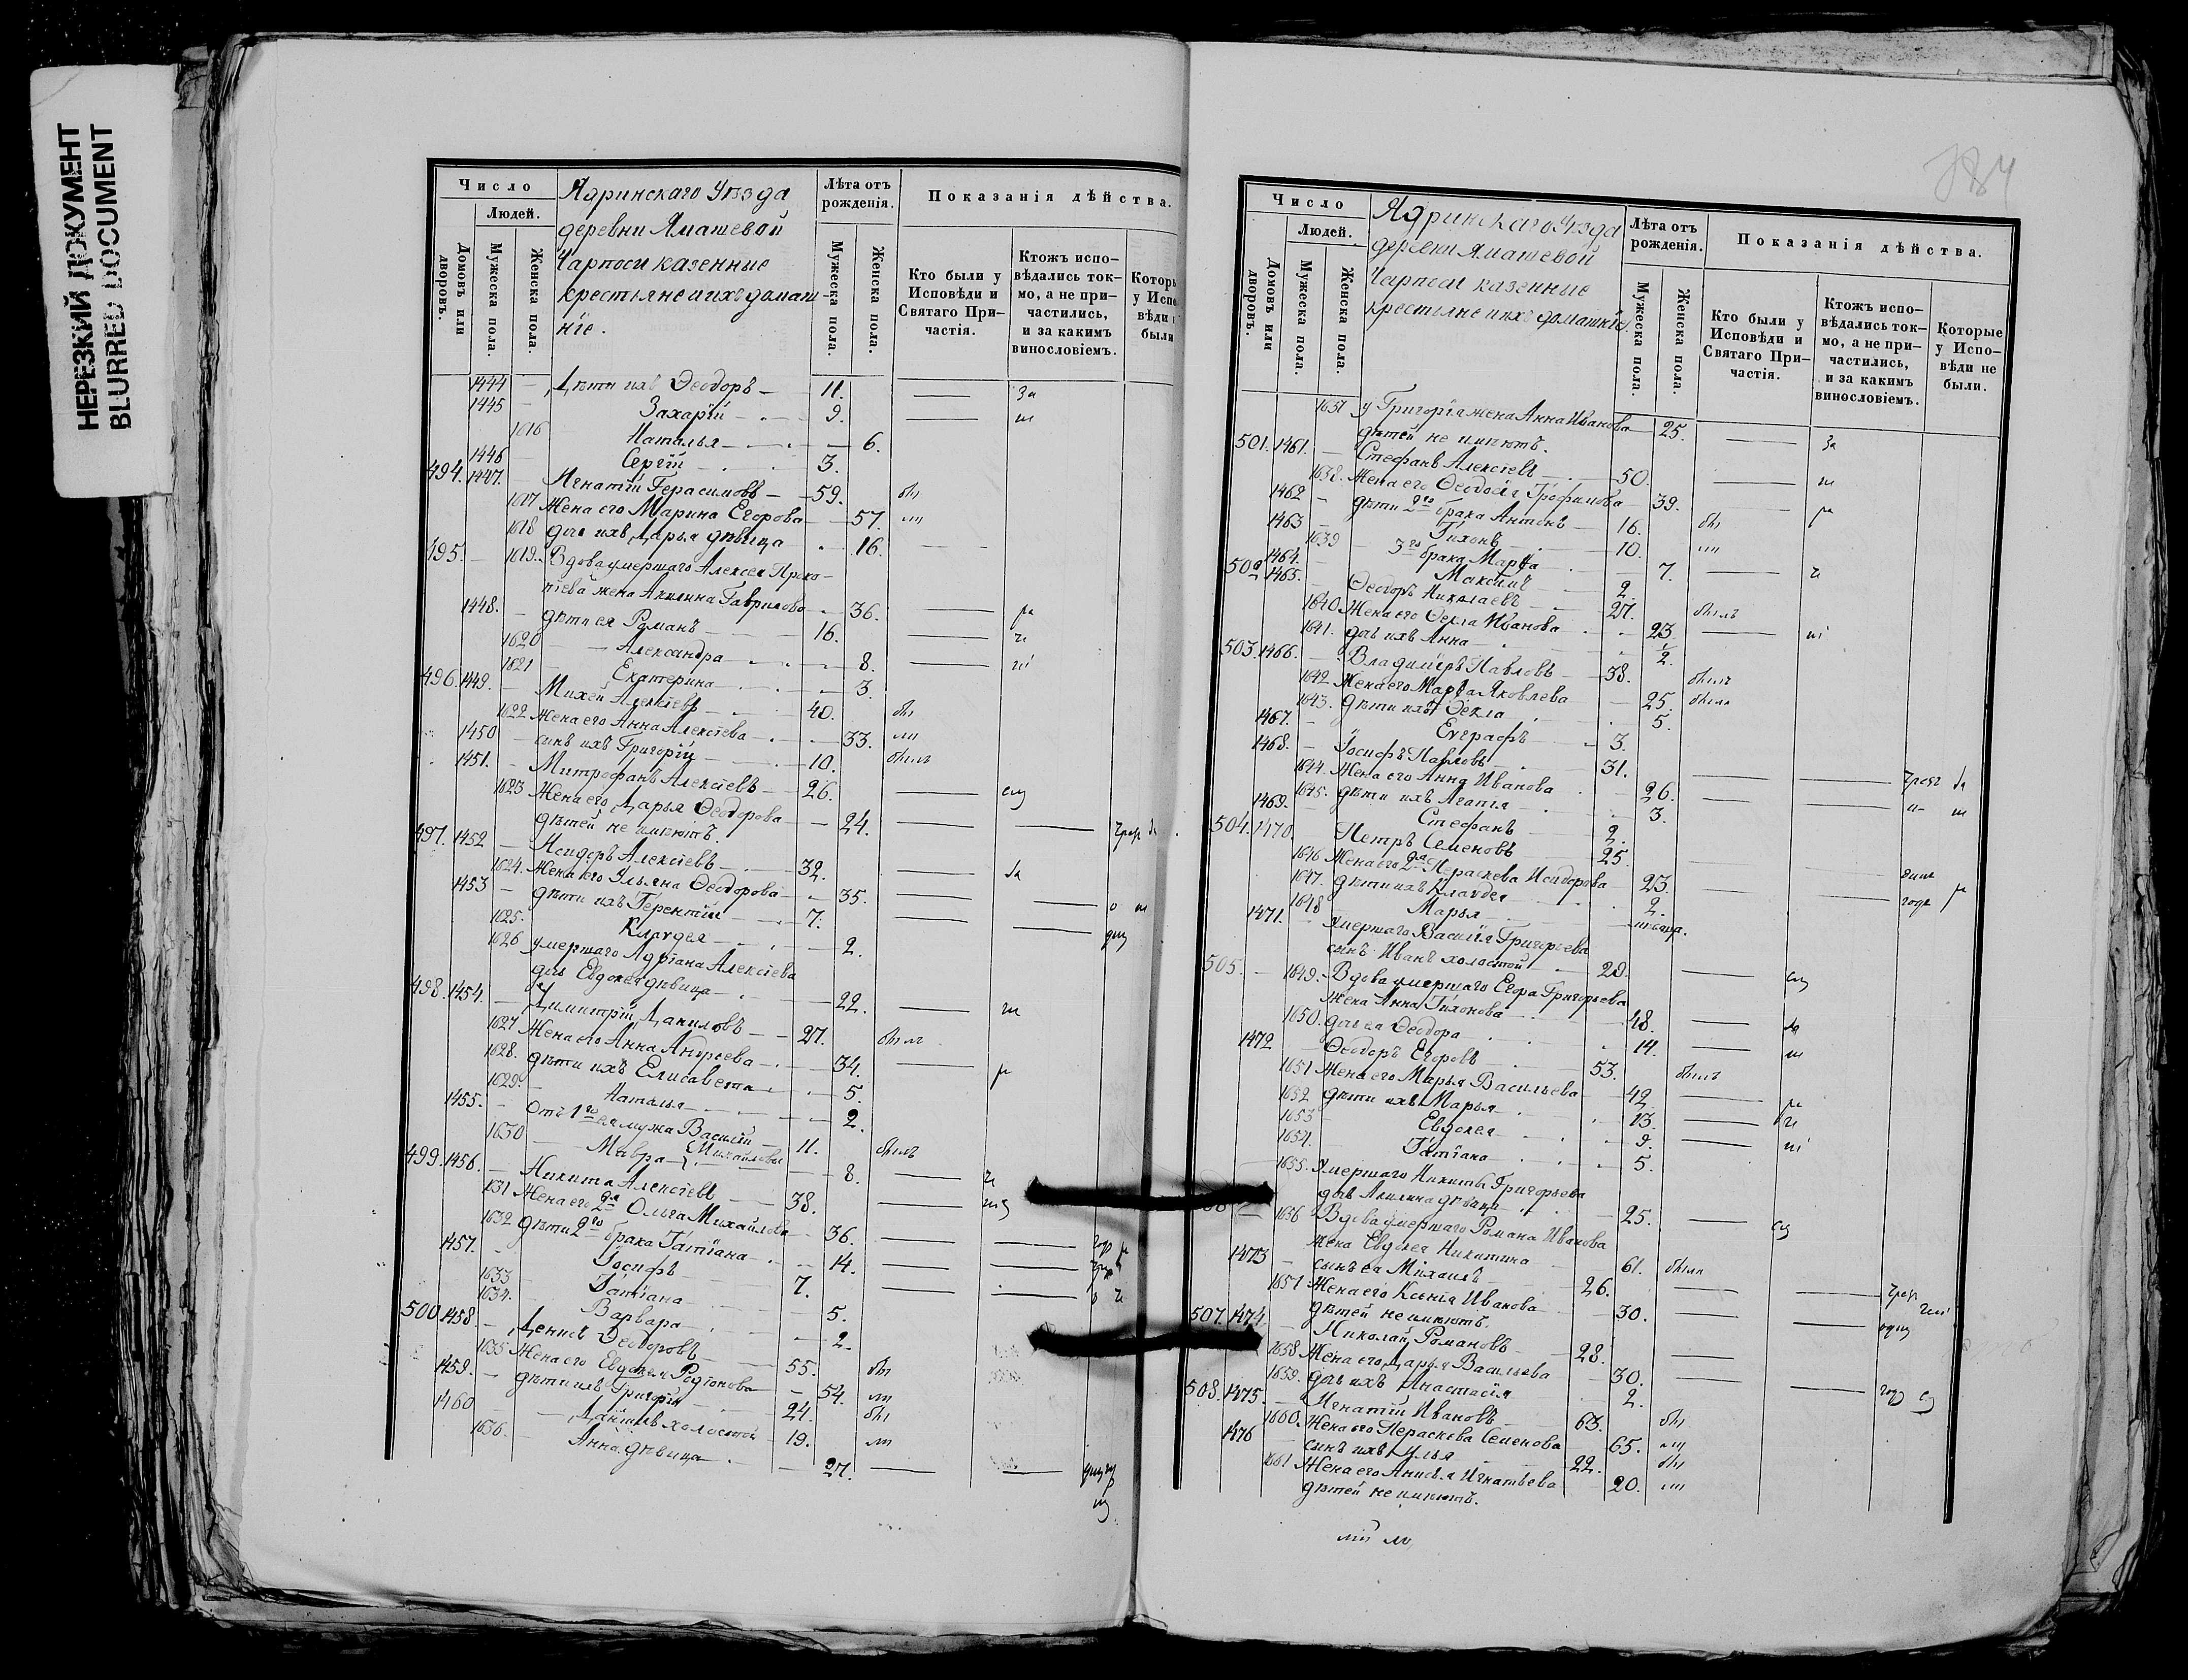 НЕРЕЗКИЙ ДОКУМЕНТ
BLURRED DOCUMENT
Число
Людей.
Домовъ или дворовъ.
Мужеска пола.
Женска пола.
Ядринскаго Уѣзда
деревни Ямашевой
Чарпоси казенные
крестьяне и ихъ домаш-
ніе.
Лѣта отъ рожденія.
Мужеска пола.
Женска пола.
Показанія дѣйства.
Кто были у Исповѣди и Святаго Причастія.
Ктожъ исповѣдались токмо, а не причастились, и за какимъ винословіемъ.
1444 — Дѣти ихъ Ѳеодоръ — 11.
1445 — Захарій — 9.
1616 Наталья — 6.
1446 — Сергій — 3.
494. 1447. — Игнатій Герасимовъ — 59.
1617 Жена его Марина Егорова — 57.
1618 дочь ихъ Дарья дѣвица 16.
495. — 1619. Вдова умершаго Алексея Проко-
піева жена Акилина Гаврилова 36.
1448. — дѣти ея Романъ 16.
1620 — Александра 8.
1621 — Екатерина 3.
496. 1449. — Михей Алексіевъ 40.
1622 Жена его Анна Алексіева 33.
1450 — сынъ ихъ Григорій 10. былъ
1451. — Митрофанъ Алексіевъ 26.
1623 Жена его Дарья Ѳеодорова 24.
дѣтей не имѣютъ.
497. 1452 — Исидоръ Алексіевъ 32.
1624. Жена его Ульяна Ѳеодорова 35.
1453 — дѣти ихъ Терентій 7.
1625. Клавдея 2.
1626 умершаго Адріана Алексіева
дочь Евдокея дѣвица 22.
498. 1454. — Димитрій Даниловъ 27. былъ
1627 Жена его Анна Андреева 34.
1628. дѣти ихъ Елисавета 5.
1629. Наталья 2.
1455. — Отъ 1го ея мужа Василій 11. былъ
1630 — Мавра — Михайловы 8.
499. 1456. — Никита Алексіевъ 38.
1631 Жена его 2я Ольга Михайлова 36.
1632 дѣти 2го брака Татіана 14.
1457. — Іосифъ 7.
1633 — Татіана 5.
1634. — Варвара 2.
500. 1458. — Денисъ Ѳеодоровъ 55.
1635 Жена его Евдокея Родіонова 54.
1459. — дѣти ихъ Григорій 24.
1460 — Даніилъ холостой 19.
1636. — Анна дѣвица 27.
Число
Людей.
Домовъ или дворовъ.
Мужеска пола.
Женска пола.
Ядринскаго Уѣзда
деревни Ямашевой
Чарпоси казенные
крестьяне и ихъ домашніе.
Лѣта отъ рожденія.
Мужеска пола.
Женска пола.
Показанія дѣйства.
Кто были у Исповѣди и Святаго Причастія.
Ктожъ исповѣдались токмо, а не причастились, и за какимъ винословіемъ.
Которые у Исповѣди не были.
1637 у Григорія жена Анна Иванова 25.
дѣтей не имѣютъ.
501. 1461. — Стефанъ Алексіевъ 50.
1638. Жена его Ѳеодосія Трофимова 39.
1462 — дѣти 2го брака Антонъ 16.
1463 — Тихонъ 10.
1639 — 3го брака Марѳа 7.
1464. — Максимъ 2.
502 1465. — Ѳеодоръ Николаевъ 27. былъ
1640 Жена его Ѳекла Иванова 23.
1641. дочь ихъ Анна ½.
503. 1466. — Владиміръ Павловъ 38. былъ
1642 Жена его Марѳа Яковлева 25. была
1643. дѣти ихъ Ѳекла 5.
1467. — Евграфъ 3.
1468. — Іосифъ Павловъ 31.
1644. Жена его Анна Иванова 26.
1645. дѣти ихъ Агапія 3.
1469. Стефанъ 2.
504. 1470. Петръ Семеновъ 25.
1646 Жена его 2я Параскева Исидорова 23.
1647. дѣти ихъ Клавдея 2.
1648 Марья
1471. — Умершаго Василія Григорьева
сынъ Иванъ холостой 20.
505. — 1649. Вдова умершаго Егора Григорьева
жена Анна Тихонова 48.
1650. дочь ея Ѳеодора 14.
1472 Ѳеодоръ Егоровъ 53. былъ
1651 Жена его Марья Васильева 42.
1652 дѣти ихъ Марья 13.
1653 Евдокея 9.
1654. Татіана 5.
1655. Умершаго Никиты Григорьева
дочь Акилина дѣвица 25.
1656 Вдова умершаго Романа Иванова
жена Евдокея Никитина 61. была
1473 — сынъ ея Михаилъ 26.
1657 Жена его Ксенія Иванова 30.
дѣтей не имѣютъ.
507. 1474. Николай Романовъ 28.
1658 Жена его Дарья Васильева 30.
1659. дочь ихъ Анастасія 2.
508. 1475. — Игнатій Ивановъ 63.
1660. Жена его Параскева Семенова 65.
1476 — сынъ ихъ Илья 22.
1661 Жена его Анисья Игнатьева 20.
дѣтей не имѣютъ.